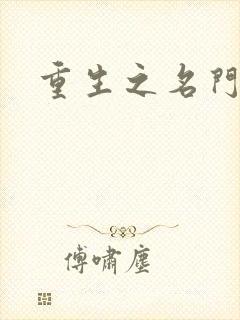 重生之名門
傅嘯塵